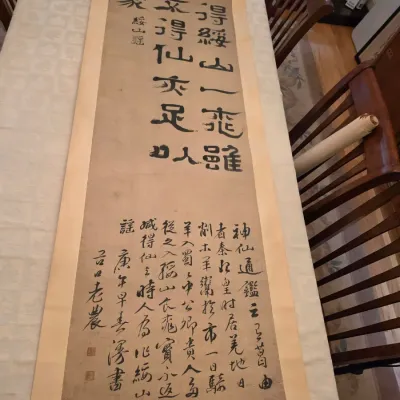 得綏山一桃雖
不得仙亦足以
豪 綏山謠
神仙通鑑云葛由
者秦始皇時居羌地日
削木羊鬻於市一日騎
羊入蜀蜀中公卿貴人多
從之入綏山食桃實永返
咸得仙之時人為作綏山
謠 庚午早春漫書
老農